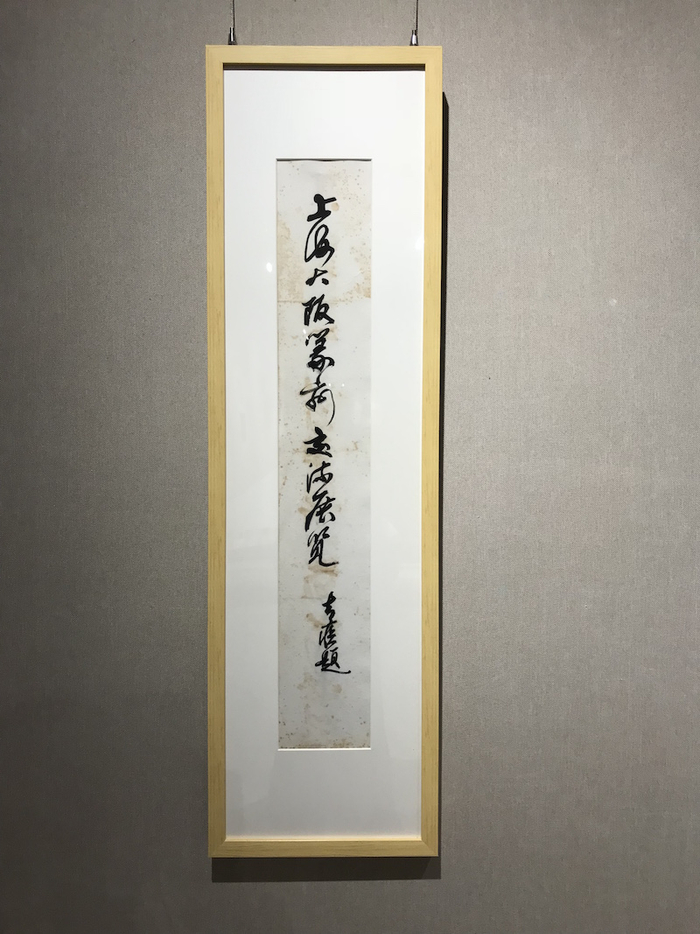 上海大阪篆刻交流展览
去疾题